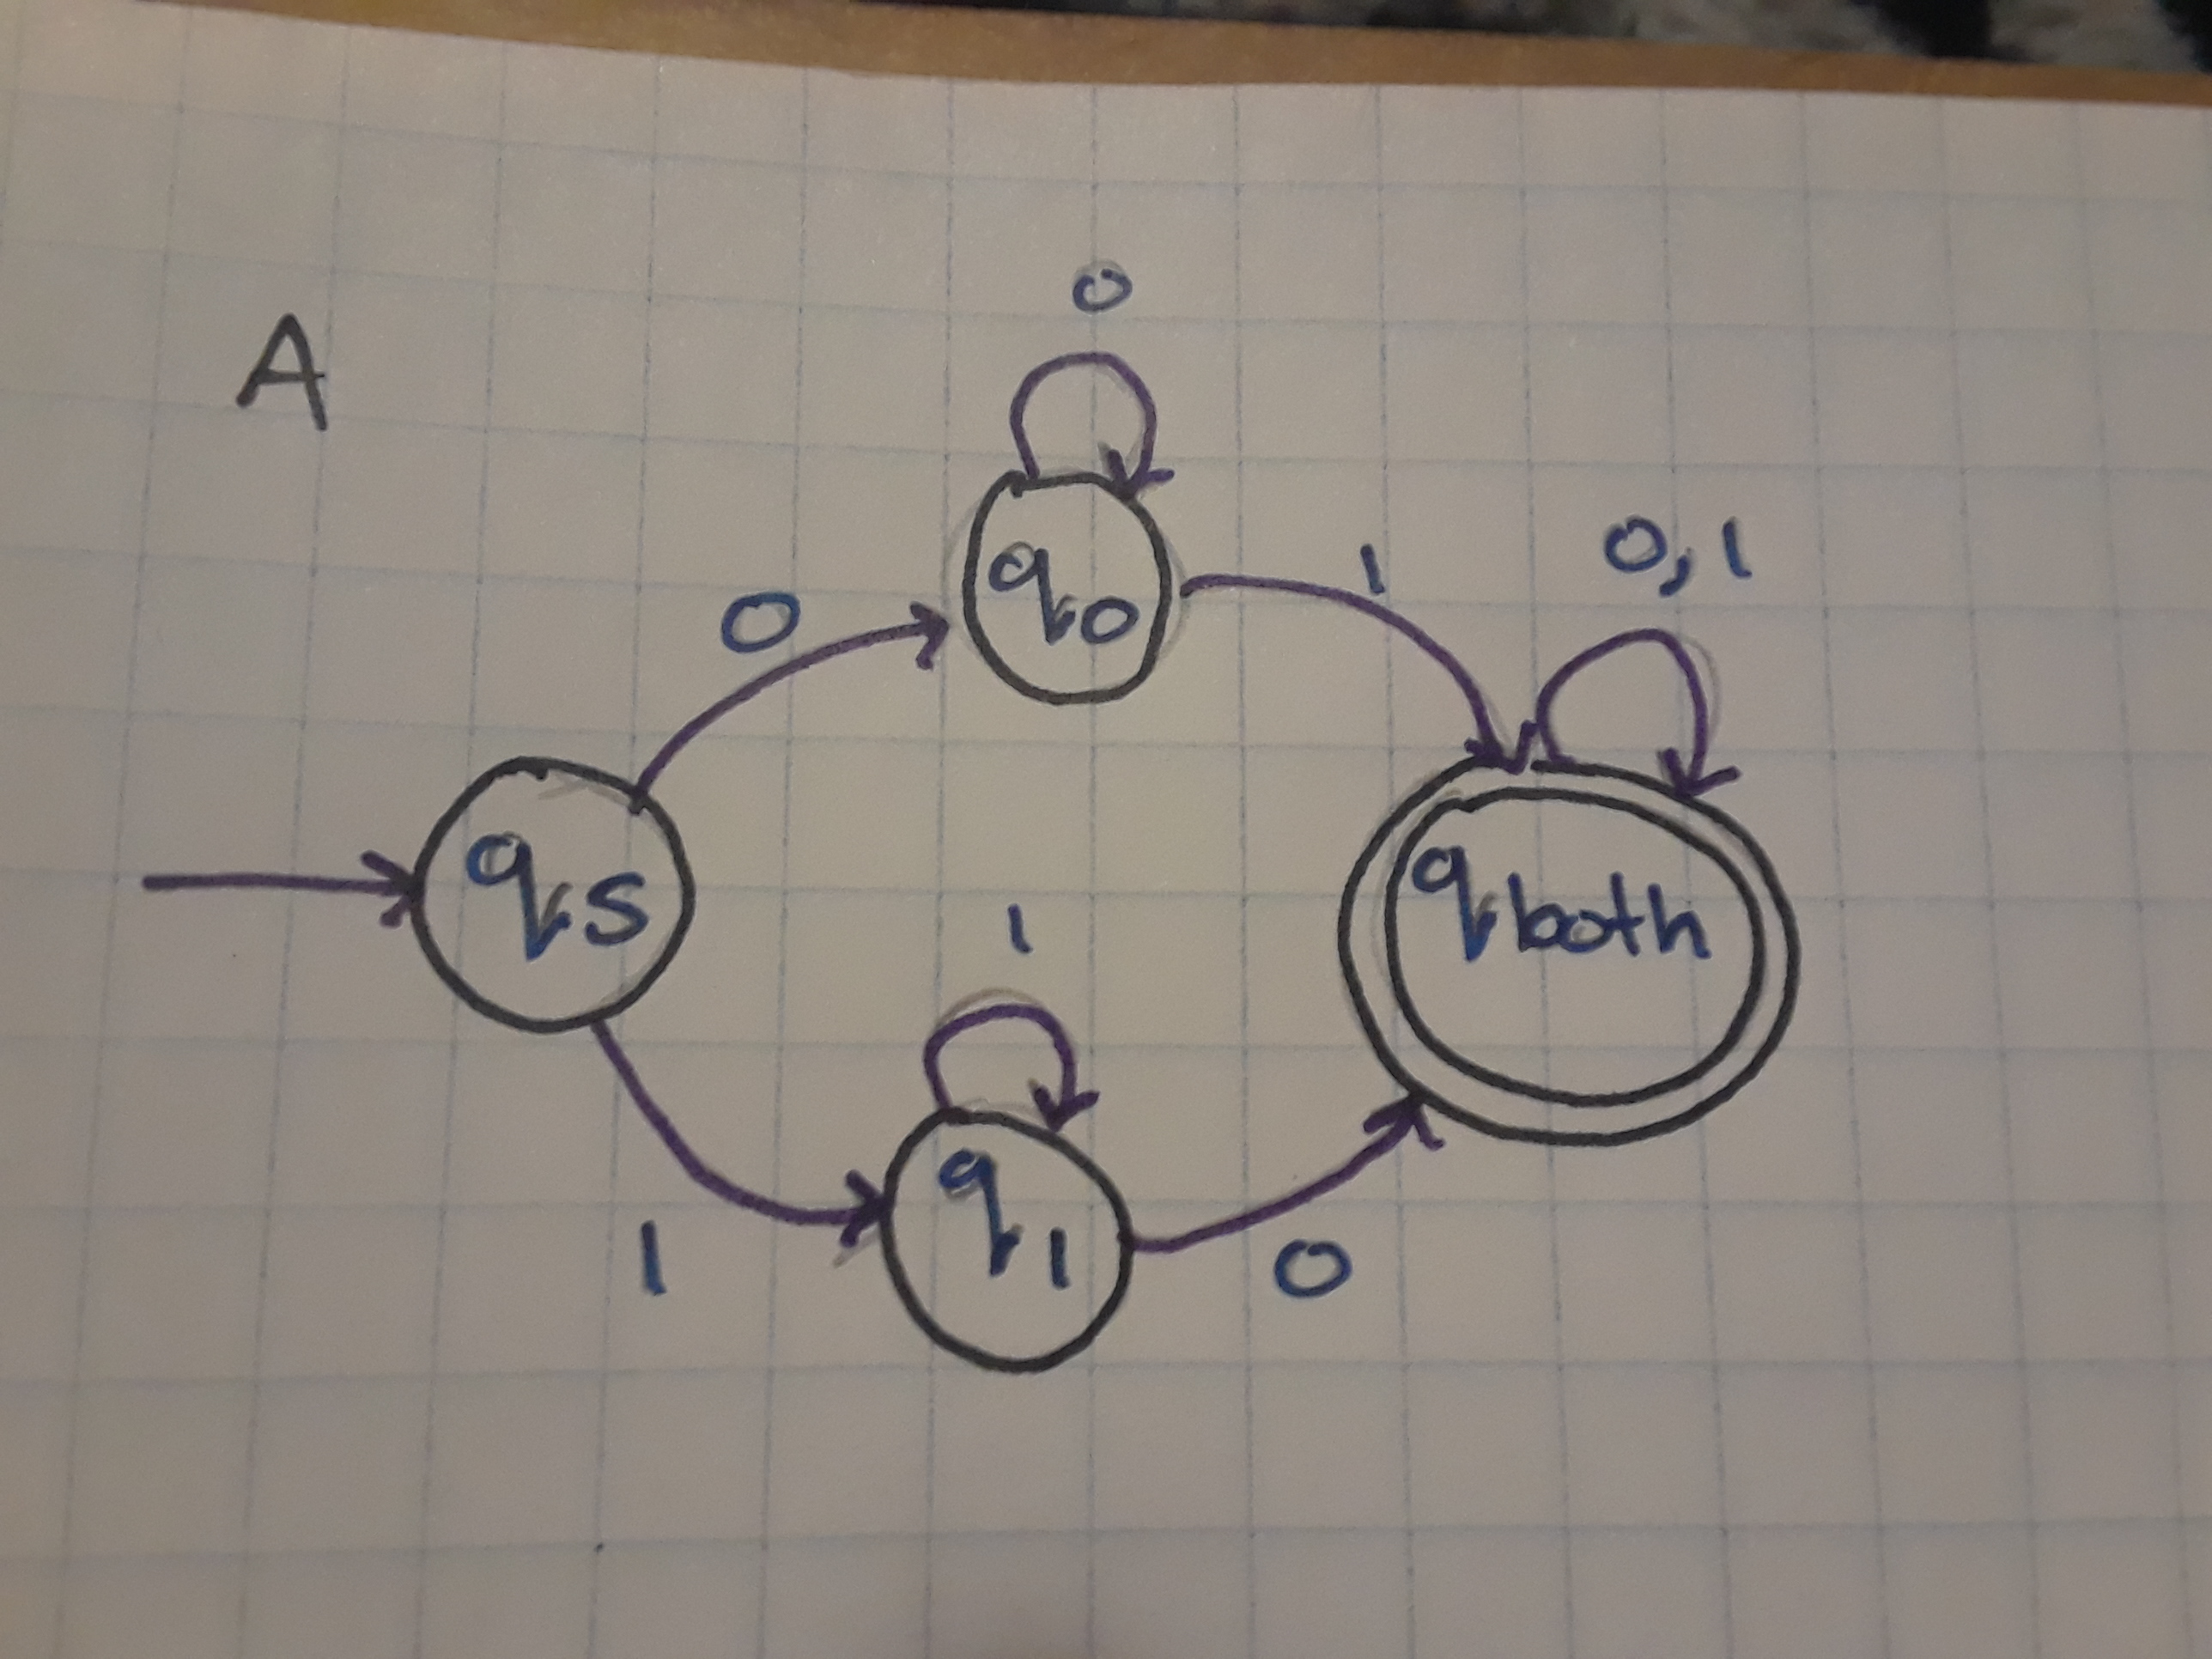 A
0
0
q0
1
0,1
qs
qboth
1
1
q1
0